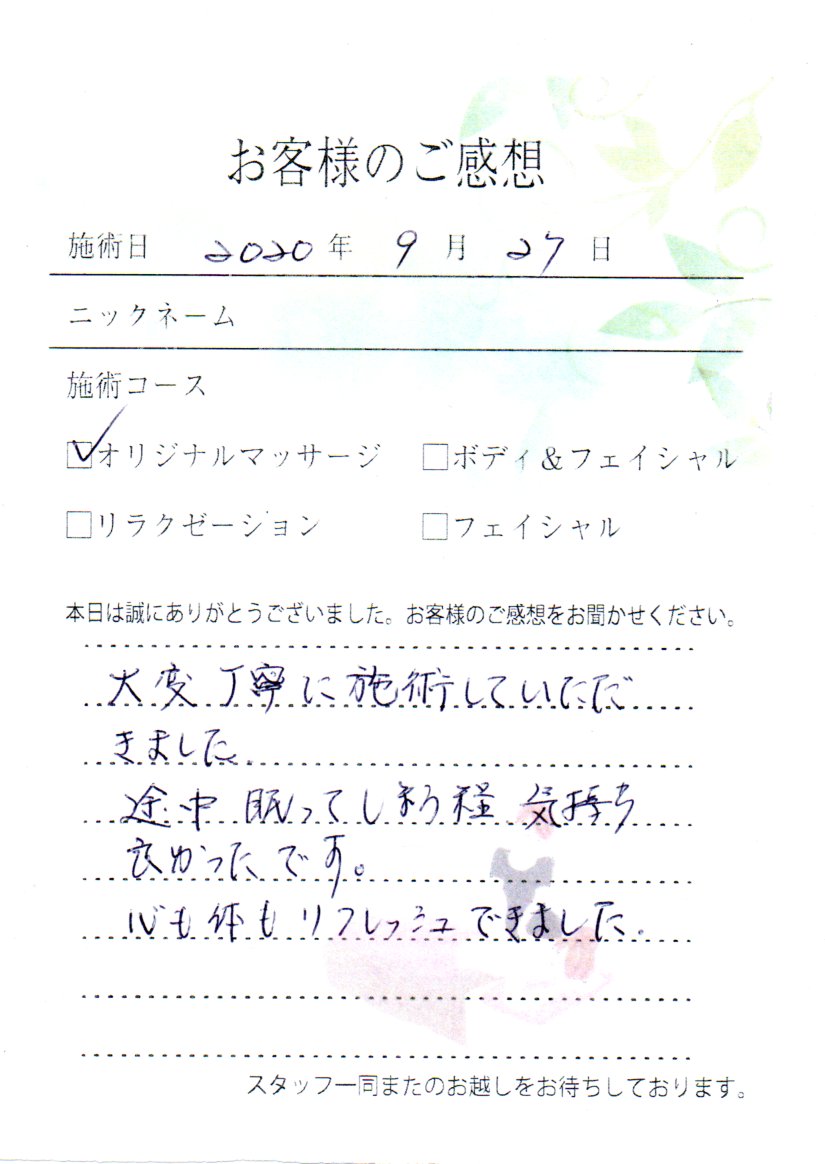 お客様のご感想
施術日 2020年 9月 27日
ニックネーム
施術コース
☑オリジナルマッサージ □ボディ&フェイシャル
□リラクゼーション □フェイシャル
本日は誠にありがとうございました。お客様のご感想をお聞かせください。
大変丁寧に施術していただ
きました。
途中眠ってしまう程気持ち
良かったです。
心も体もリフレッシュできました。
スタッフ一同またのお越しをお待ちしております。